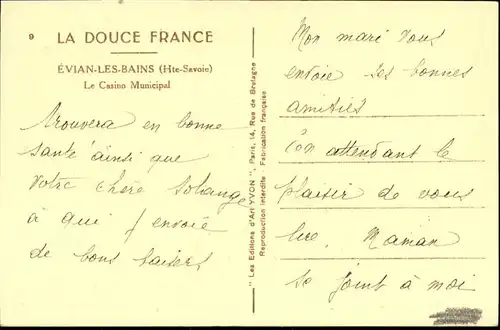 9 LA DOUCE FRANCE
ÉVIAN-LES-BAINS (Hte-Savoie)
Le Casino Municipal
trouvera en bonne
santé ainsi que
votre chère Solange
à qui j envoie
de bons baisers
"Les Editions d'Art YVON", Paris, 14, Rue de Bretagne
Reproduction interdite - Fabrication française
Mon mari vous
envoie ses bonnes
amitiés
En attendant le
plaisir de vous
lire, Maman
se joint à moi